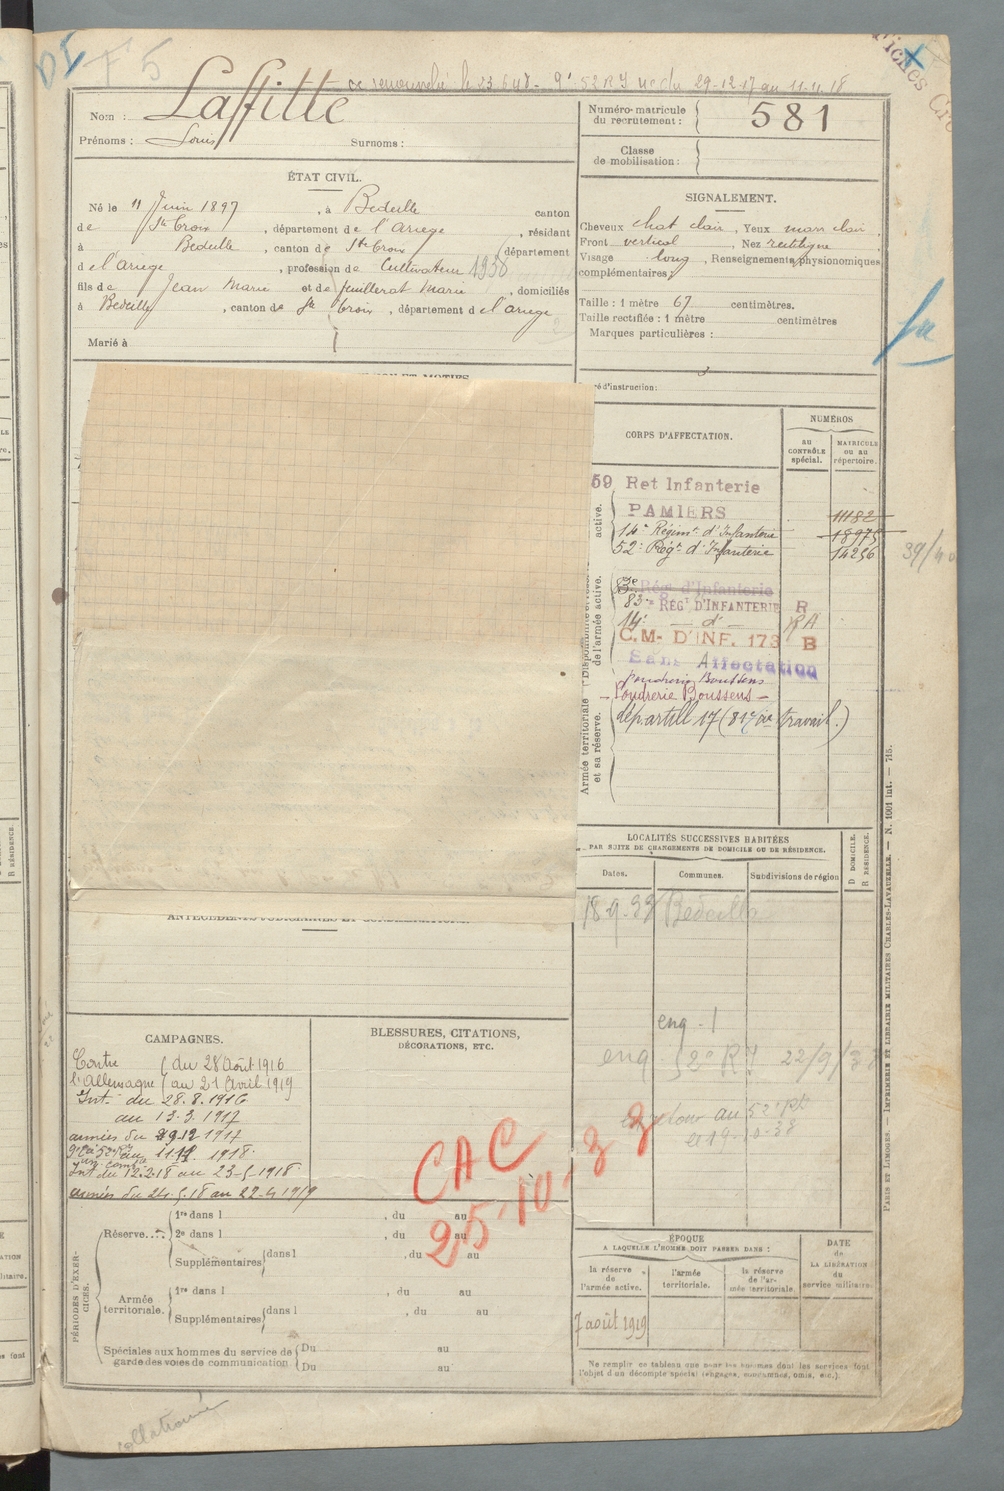 DI
F 5
Fiches
Nom : Laffitte
Prénoms : Louis Surnoms :
Numéro-matricule
du recrutement : 581
Classe
de mobilisation :
ÉTAT CIVIL.
Né le 11 Juin 1897, à Bedeille canton
de Ste Croix, département de l'Ariege, résidant
à Bedeille, canton de Ste Croix département
de l'ariege, profession de Cultivateur 1938
fils de Jean Marie et de feuillerat Marie, domiciliés
à Bedeille, canton de Ste Croix, département de l'ariege
Marié à
SIGNALEMENT.
Cheveux chat clair, Yeux marr clair,
Front vertical, Nez rectiligne
Visage long, Renseignements physionomiques
complémentaires
Taille : 1 mètre 67 centimètres.
Taille rectifiée : 1 mètre centimètres
Marques particulières :
d'instruction: 3
CORPS D'AFFECTATION.
NUMÉROS
au
CONTRÔLE
spécial.
MATRICULE
ou au
répertoire.
59 Ret Infanterie
PAMIERS 11182
14e Régimt d'Infanterie 18975
52e Régt d'Infanterie 14256
39/40
active.
3e Régt d'Infanterie
83e RÉGT D'INFANTERIE R
14e — d° — RA
C.M- D'INF. 173 B
Sans Affectation
poudrerie Boussens
Poudrerie Boussens —
dép artill 17 (81e travail.)
de l'armée active.
Armée territoriale
et sa réserve.
LOCALITÉS SUCCESSIVES HABITÉES
PAR SUITE DE CHANGEMENTS DE DOMICILE OU DE RÉSIDENCE.
Dates. Communes. Subdivisions de région
D DOMICILE.
R RÉSIDENCE.
18-9-33 Bedeille
ANTÉCÉDENTS JUDICIAIRES ET CONDAMNATIONS.
CAMPAGNES.
Contre du 28 Août 1916
l'Allemagne au 21 Avril 1919
Int. du 28.8.1916
au 13.3.1917
armées du 29.12.1917
Int du 12.2.18 au 23-5-1918
armées du 24.5.18 au 22-4 1919
BLESSURES, CITATIONS,
DÉCORATIONS, ETC.
CAC
25.10.33
PÉRIODES D'EXERCICES.
Réserve
1re dans l , du au
2e dans l , du au
Supplémentaires dans l , du au
Armée
territoriale.
1re dans l , du au
Supplémentaires dans l , du au
Spéciales aux hommes du service de
garde des voies de communication
Du au
Du au
ÉPOQUE
A LAQUELLE L'HOMME DOIT PASSER DANS :
la réserve
de
l'armée active.
l'armée
territoriale.
la réserve
de l'ar-
mée territoriale.
DATE
de
LA LIBÉRATION
du
service militaire.
7 août 1919
Ne remplir ce tableau que pour les hommes dont les services font
l'objet d'un décompte spécial (engagés, condamnés, omis, etc.).
PARIS ET LIMOGES. — IMPRIMERIE ET LIBRAIRIE MILITAIRES CHARLES-LAVAUZELLE. — N. 1001 int. — 715.
collationné